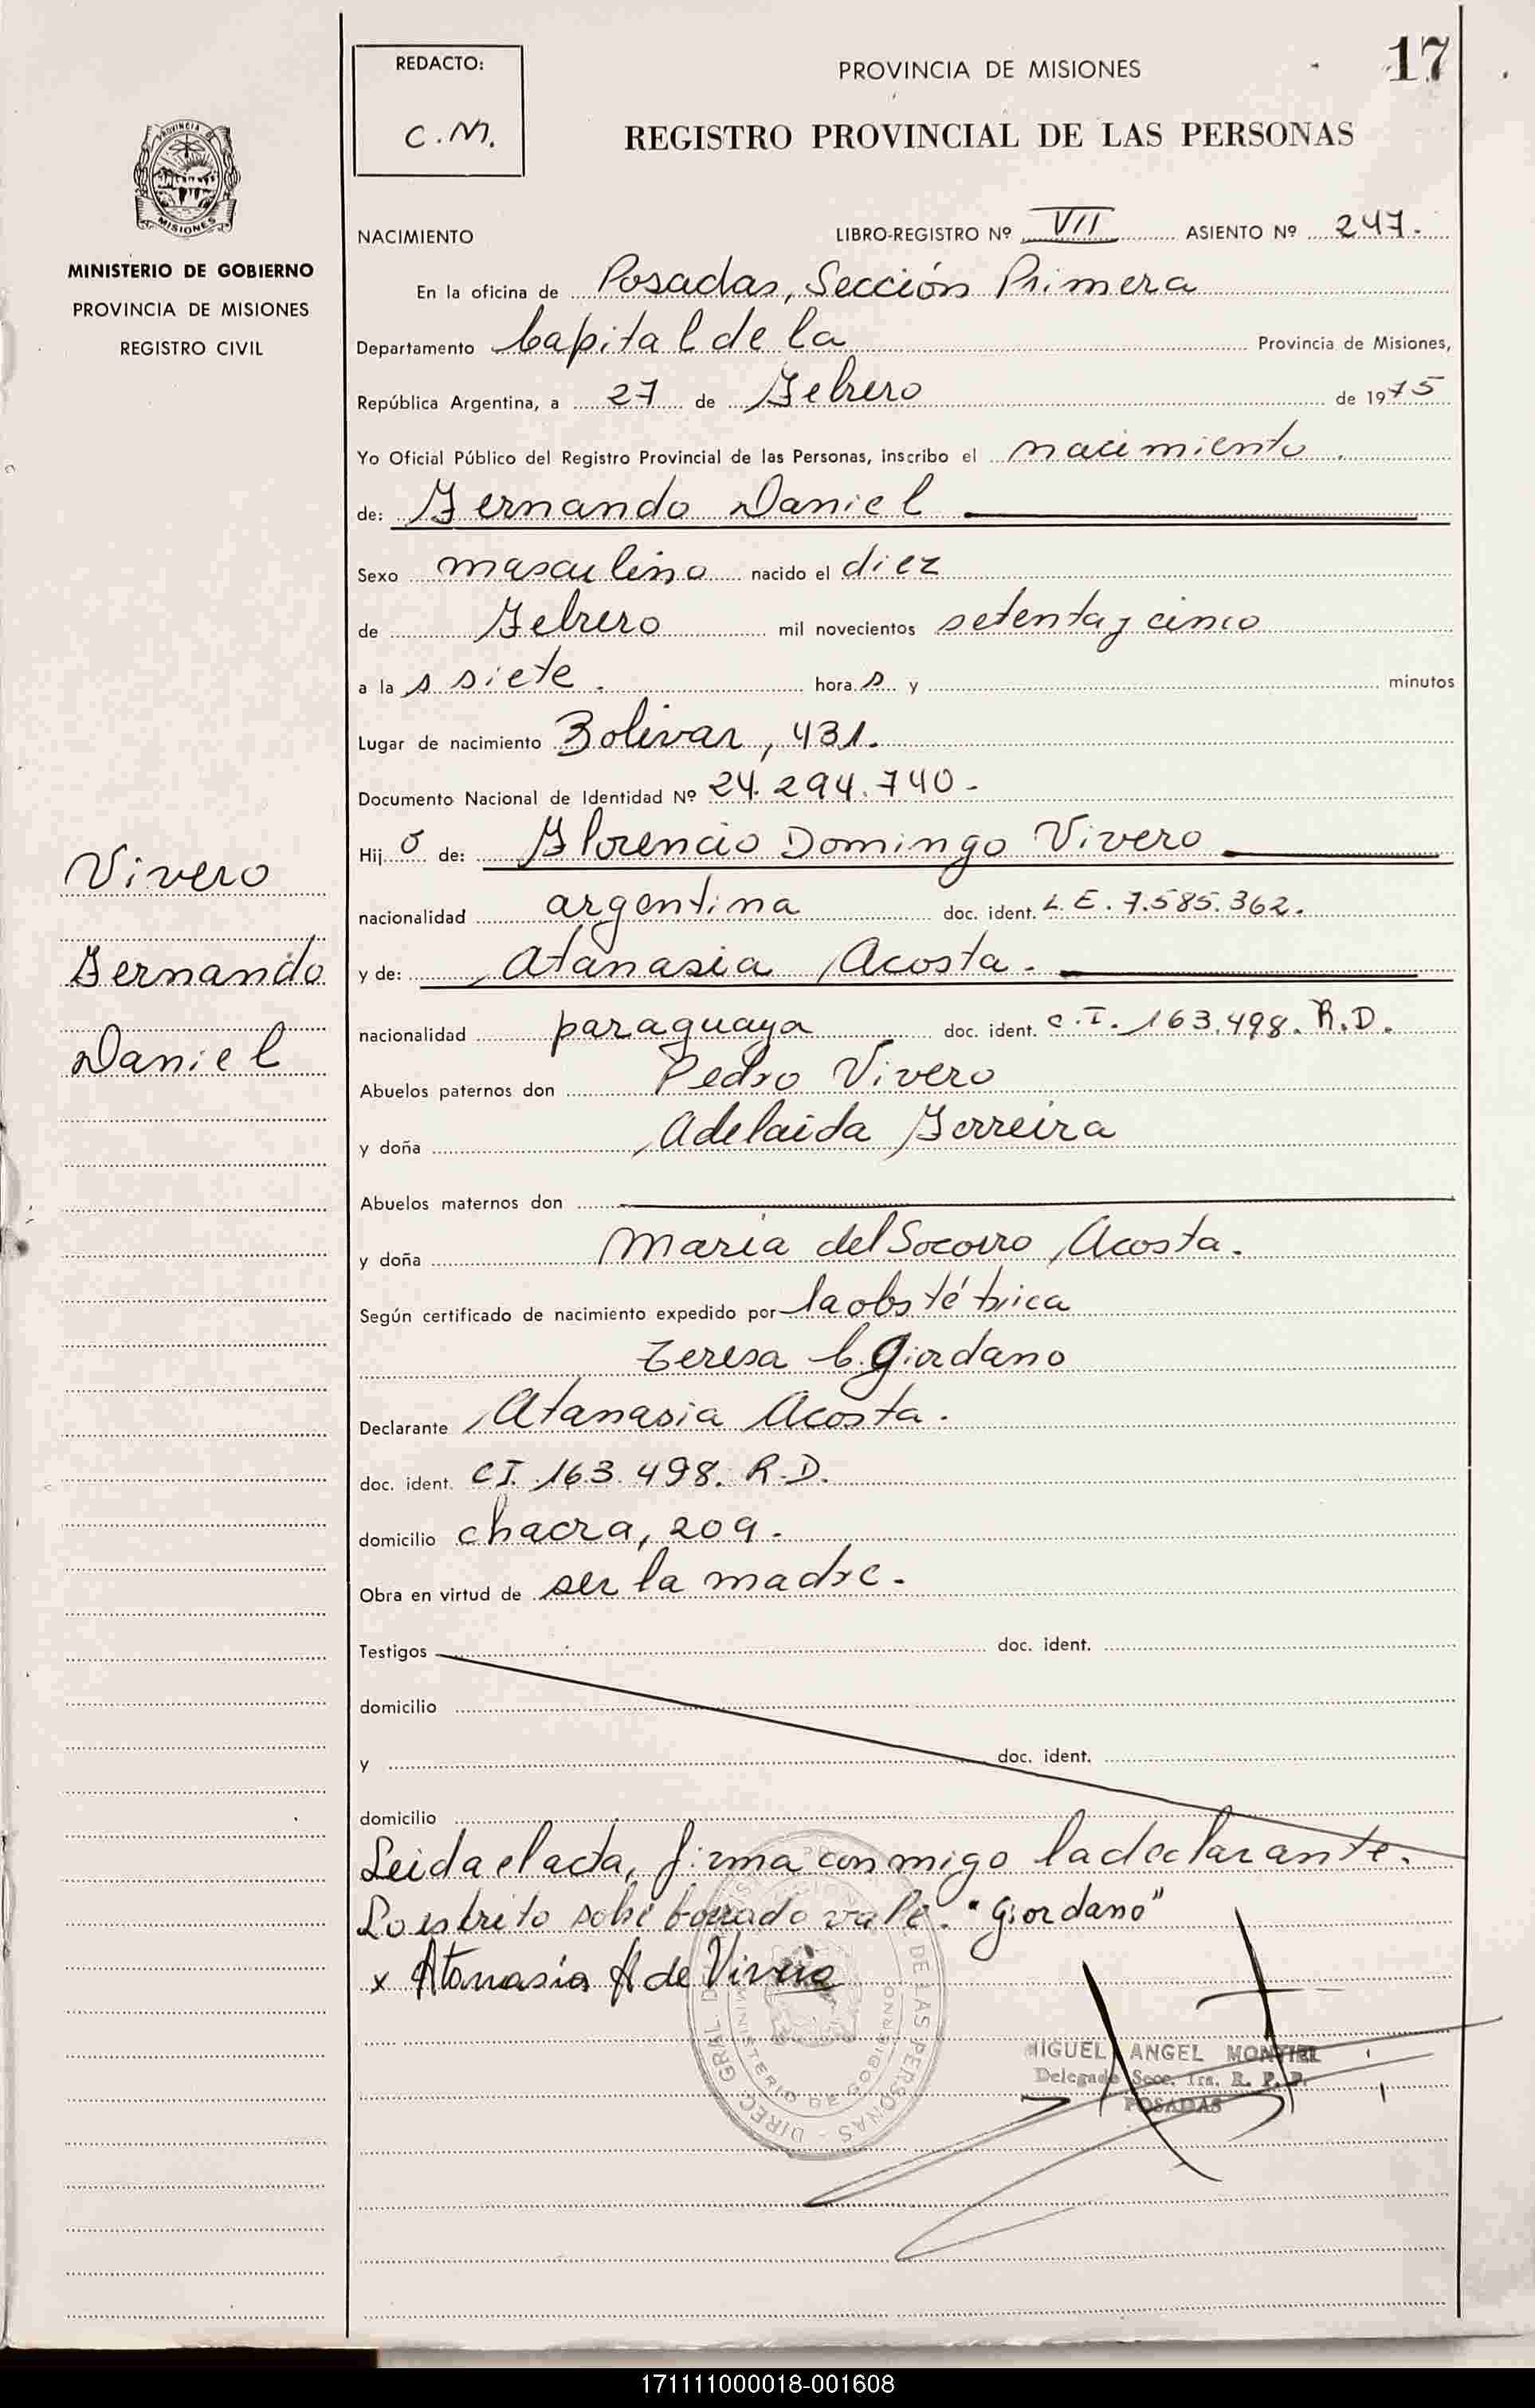 17
REDACTO:
C.M.
PROVINCIA DE MISIONES
REGISTRO PROVINCIAL DE LAS PERSONAS
PROVINCIA DE
MISIONES
MINISTERIO DE GOBIERNO
PROVINCIA DE MISIONES
REGISTRO CIVIL
NACIMIENTO
LIBRO-REGISTRO Nº VII ASIENTO Nº 247.
En la oficina de Posadas, Sección Primera
Departamento Capital de la Provincia de Misiones,
República Argentina, a 27 de Febrero de 1975
Yo Oficial Público del Registro Provincial de las Personas, inscribo el nacimiento
de: Fernando Daniel
Sexo masculino nacido el diez
de Febrero mil novecientos setenta y cinco
a la s siete. hora s y minutos
Lugar de nacimiento Bolivar, 431.
Documento Nacional de Identidad Nº 24.294.740-
Hij o de: Florencio Domingo Vivero
nacionalidad argentina doc. ident. L.E. 7.585.362.
y de: Atanasia Acosta.
nacionalidad paraguaya doc. ident. C.I. 163.498. R.D.
Abuelos paternos don Pedro Vivero
y doña Adelaida Ferreira
Abuelos maternos don
y doña Maria del Socorro Acosta.
Según certificado de nacimiento expedido por la obstétrica
Teresa C. Giordano
Declarante Atanasia Acosta.
doc. ident. CI. 163.498. R.D.
domicilio chacra, 209.
Obra en virtud de ser la madre.
Testigos doc. ident.
domicilio
y doc. ident.
domicilio
Leida el acta, firma conmigo la declarante.
Lo escrito sobre borrado vale. "Giordano"
x Atanasia A de Vivero
Vivero
Fernando
Daniel
MIGUEL ANGEL MONTIEL
Delegado Secc. 1ra. R. P. P.
POSADAS
DIREC. GRAL. DE LAS PERSONAS
MINISTERIO DE GOBIERNO
171111000018-001608